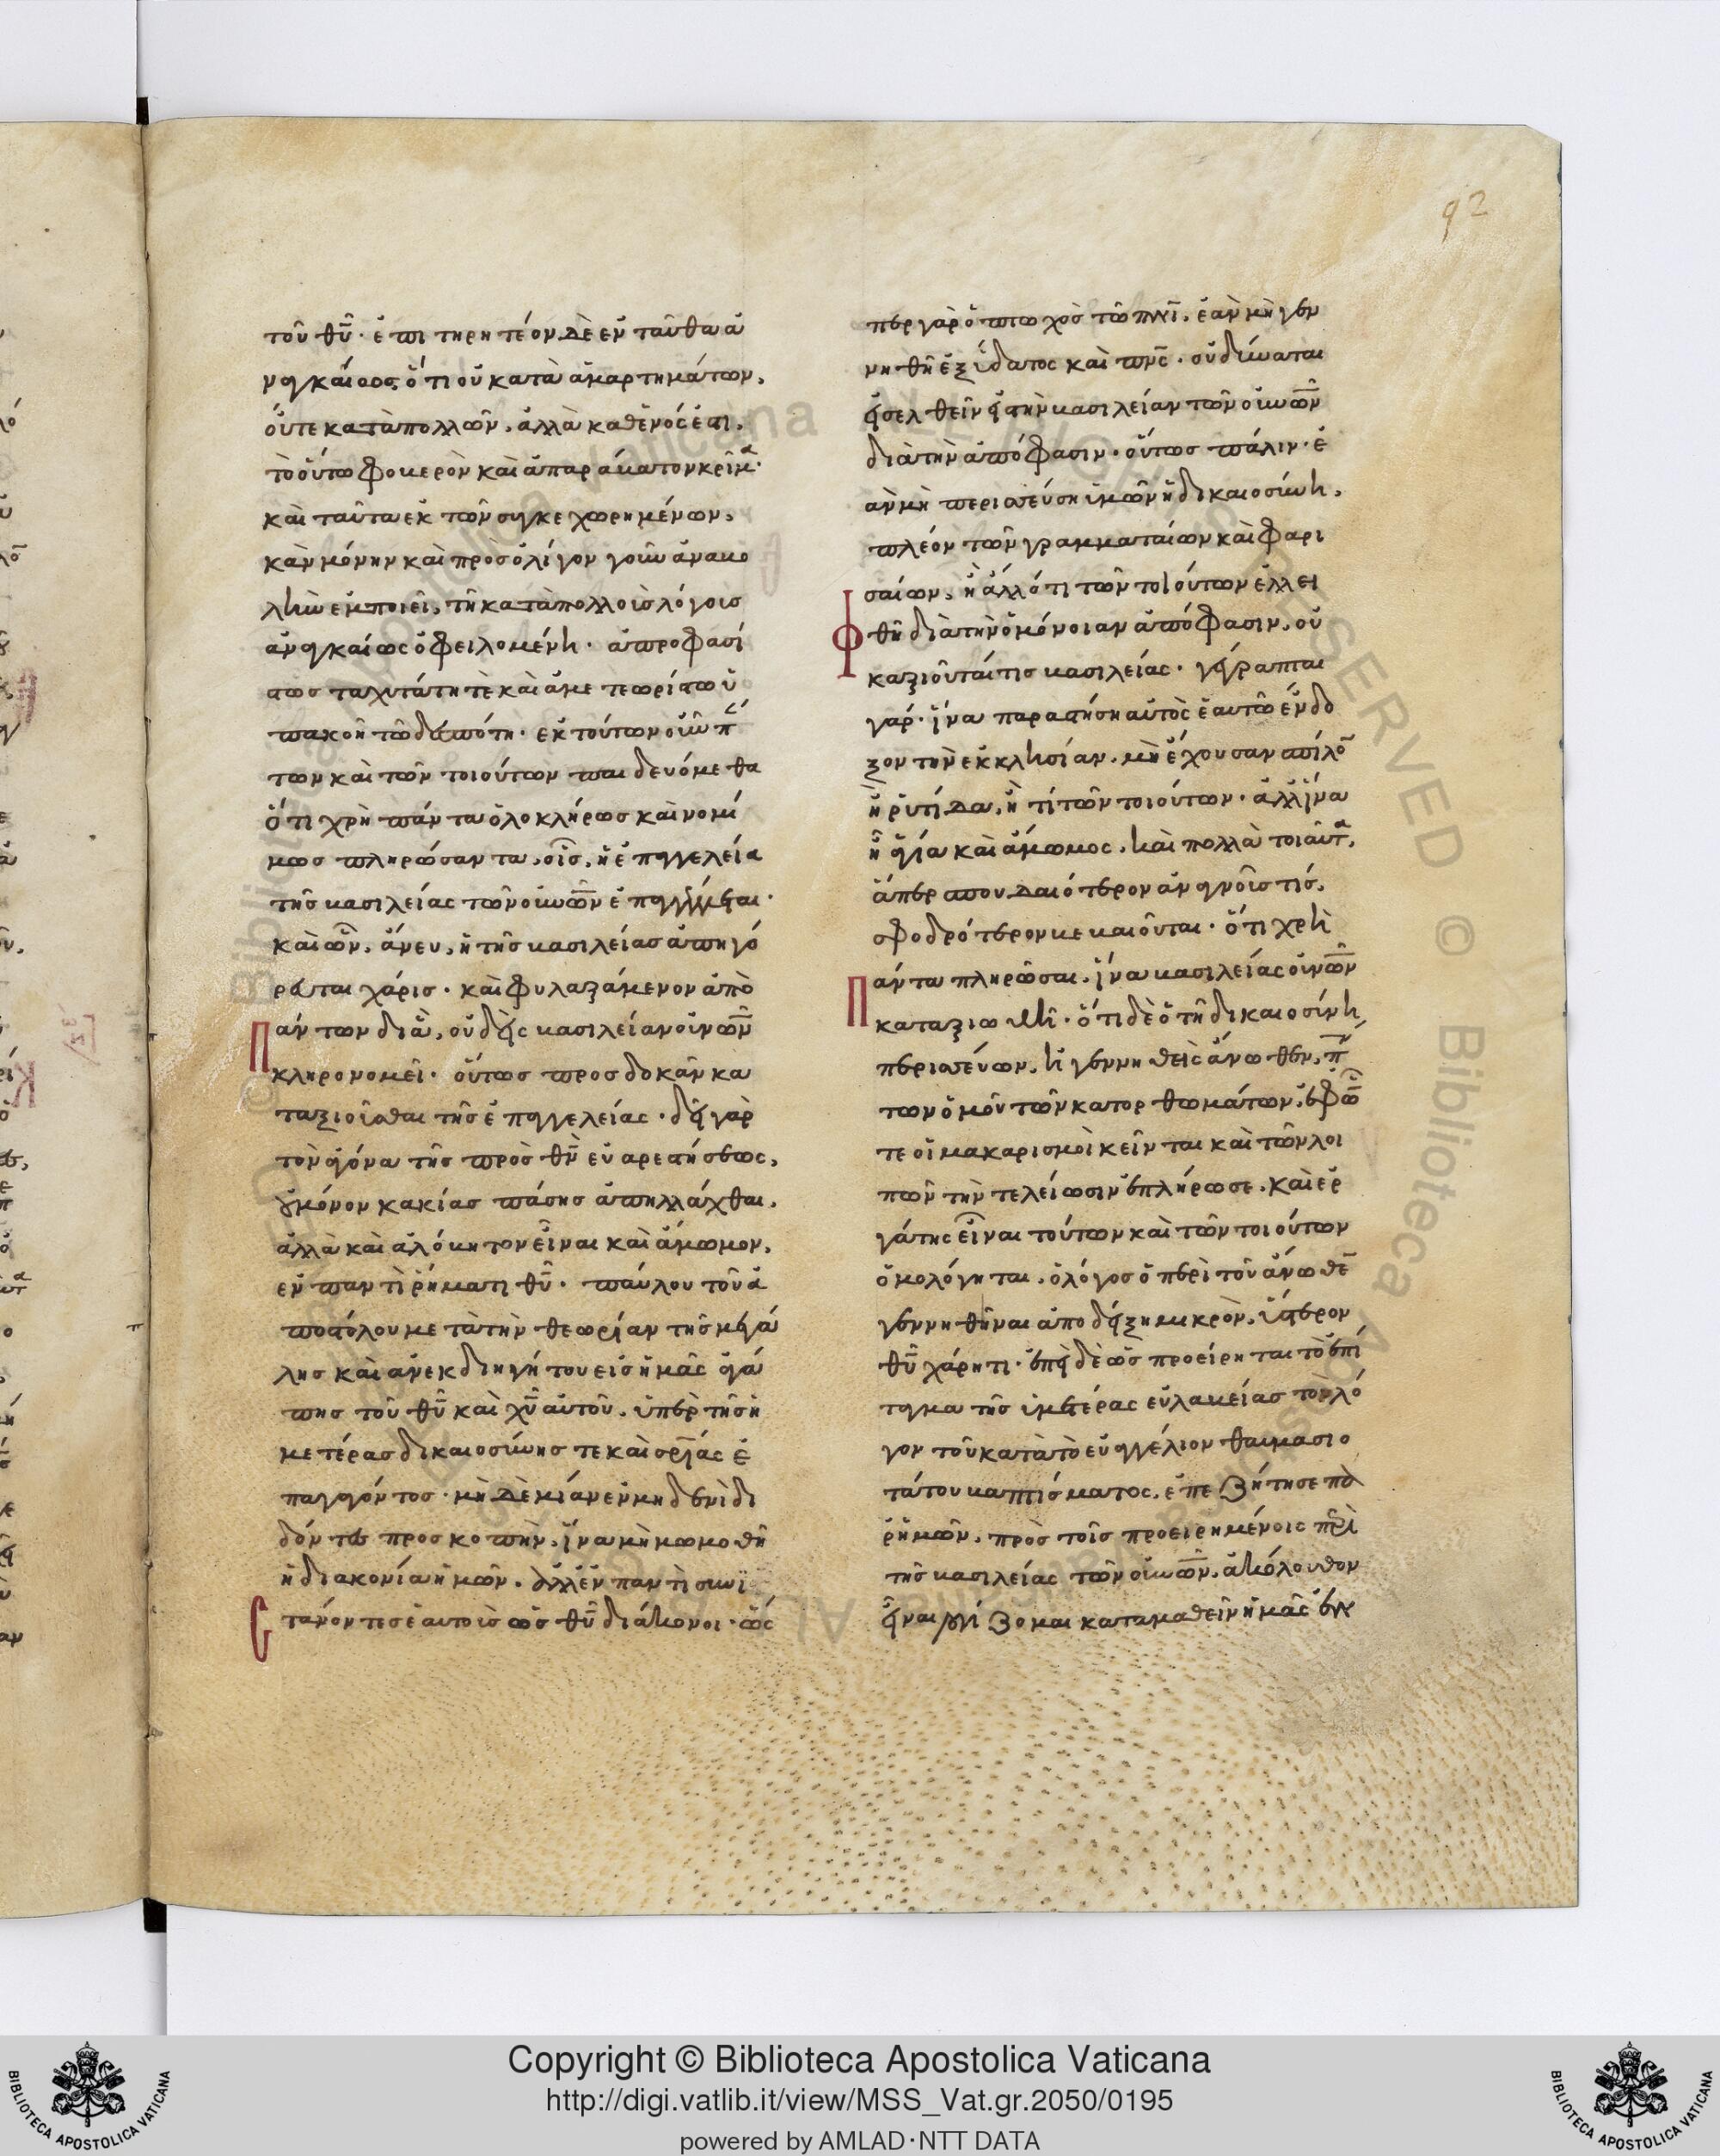 92
τοῦ θῦ· ἐπιτηρητέον δὲ ἐνταῦθα ἀ
ναγκαίως, ὅτι οὐ κατὰ ἁμαρτημάτων,
οὔτε κατὰ πολλῶν, ἀλλὰ καθενός ἐστι,
τὸ οὕτω φοβερὸν καὶ ἀπαράβατον κρῖμα·
καὶ ταῦτα ἐκ τῶν συγκεχωρημένων,
κἂν μόνην καὶ πρὸς ὀλίγον γοῦν ἀναβο
λὴν ἐμποιεῖ, τῆ κατὰ πολλοὺς λόγοις
ἀναγκαίως ὀφειλομένη· ἀπροφασί
στως ταχυτάτη τὲ καὶ ἀμετεωρίστω ὑ
πακοῆ τῶ δεσπότη· ἐκ τούτων οὖν π
των καὶ τῶν τοιούτων παιδευόμεθα
ὅτι χρὴ πάντα ὁλοκλήρως καὶ νομί
μως πληρώσαντα, οἷς, ἡ ἐπαγγελεία
τῆς βασιλείας τῶν οὐνῶν ἐπαγγέλλεται·
καὶ ὧν, ἄνευ, ἡ τῆς βασιλείας ἀπηγό
ρευται χάρις· καὶ φυλαξάμενον ἀπὸ
πάντων δι ἃ, οὐδεὶς βασιλείαν οὐνῶν
κληρονομεῖ· οὕτως προσδοκᾶν κα
ταξιοῦσθαι τῆς ἐπαγγελείας· δεῖ γὰρ
τὸν ἀγῶνα τῆς πρὸς θν εὐαρεστήσεως,
οὐ μόνον κακίας πάσης ἀπηλλάχθαι,
ἀλλὰ καὶ ἀλόβητον εἶναι καὶ ἄμωμον,
ἐν παντὶ ῥήματι θῦ· παύλου τοῦ ἀ
ποστόλου μετὰ τὴν θεωρίαν τῆς μεγά
λης καὶ ἀνεκδιηγήτου εἰς ἡμᾶς ἀγά
πης τοῦ θῦ καὶ χῦ αὐτοῦ, ὑπὲρ τῆς ἡ
μετέρας δικαιοσύνης τε καὶ σρίας ἐ
παγαγόντος· μὴ δὲ μίαν ἐν μηδενὶ δι
δόντες προσκοπὴν, ἵνα μὴ μωμηθῆ
ἡ διακονία ἡμῶν. ἀλλ' ἐν παντὶ συνϊ
στάνοντες ἑαυτοὺς ὡς θῦ διάκονοι· ὥς
περ γὰρ ὁ πτωχὸς τῶ πνι, ἐὰν μὴ γεν
νηθῆ ἐξ ὕδατος καὶ πνς· οὐ δύναται
εἰσελθεῖν εἰς τὴν βασιλείαν τῶν οὐνῶν
διὰ τὴν ἀπόφασιν· οὕτως πάλιν· ἐ
ὰν μὴ περισσεύση ὑμῶν ἡ δικαιοσύνη,
πλέον τῶν γραμματαίων καὶ φαρι
σαίων, ἢ ἄλλό τι τῶν τοιούτων ἐλλει
φθῆ διὰ τὴν ὁμόνοιαν ἀπόφασιν, οὐ
κ ἀξιοῦται τῆς βασιλείας· γέγραπται
γάρ· ἵνα παραστήση αὐτὸς ἑαυτῶ ἔνδο
ξον τὴν ἐκκλησίαν, μὴ ἔχουσαν σπίλον
ἢ ῥυτίδα, ἤ τι τῶν τοιούτων· ἀλλ' ἵνα
ἦ ἁγία καὶ ἄμωμος, καὶ πολλὰ τοιαῦτα,
ἅπερ σπουδαιότερον ἀναγνοῦς τίς,
σφοδρότερον βεβαιοῦται· ὅτι χρὴ
πάντα πληρῶσαι, ἵνα βασιλείας οὐνῶν
καταξιωθῆ· ὅτι δὲ ὁ τῆ δικαιοσύνη
περισσεύων, ἢ γεννηθεὶς ἄνωθεν, π
των ὁμοῦ τῶν κατορθωμάτων, ἐφ ὧν
τε οἱ μακαρισμοὶ κεῖνται καὶ τῶν λοι
πῶν τὴν τελείωσιν ἐπλήρωσε, καὶ ἐρ
γάτης εἶναι τούτων καὶ τῶν τοιούτων
ὁμολόγηται, ὁ λόγος ὁ περὶ τοῦ ἄνωθεν
γεννηθῆναι ἀποδείξη μικρὸν, ὕστερον
θῦ χάρητι· ἐπεὶ δὲ ὡς προείρηται τὸ ἐπί
ταγμα τῆς ὑμετέρας εὐλαβείας τὸν λό
γον τοῦ κατὰ τὸ εὐαγγέλιον θαυμασιο
τάτου βαπτίσματος, ἐπεζήτησε πα
ρ' ἡμῶν, πρὸς τοῖς προειρημένοις περὶ
τῆς βασιλείας τῶν οὐνῶν, ἀκόλουθον
εἶναι νομίζομαι καταμαθεῖν ἡμᾶς ἐν
Copyright © Biblioteca Apostolica Vaticana
http://digi.vatlib.it/view/MSS_Vat.gr.2050/0195
powered by AMLAD·NTT DATA
BIBLIOTECA APOSTOLICA VATICANA
BIBLIOTECA APOSTOLICA VATICANA